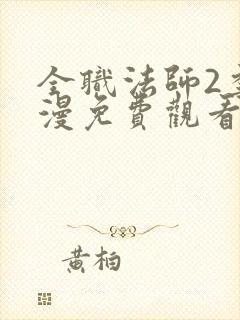 全職法師2
漫免費觀看
黃柏